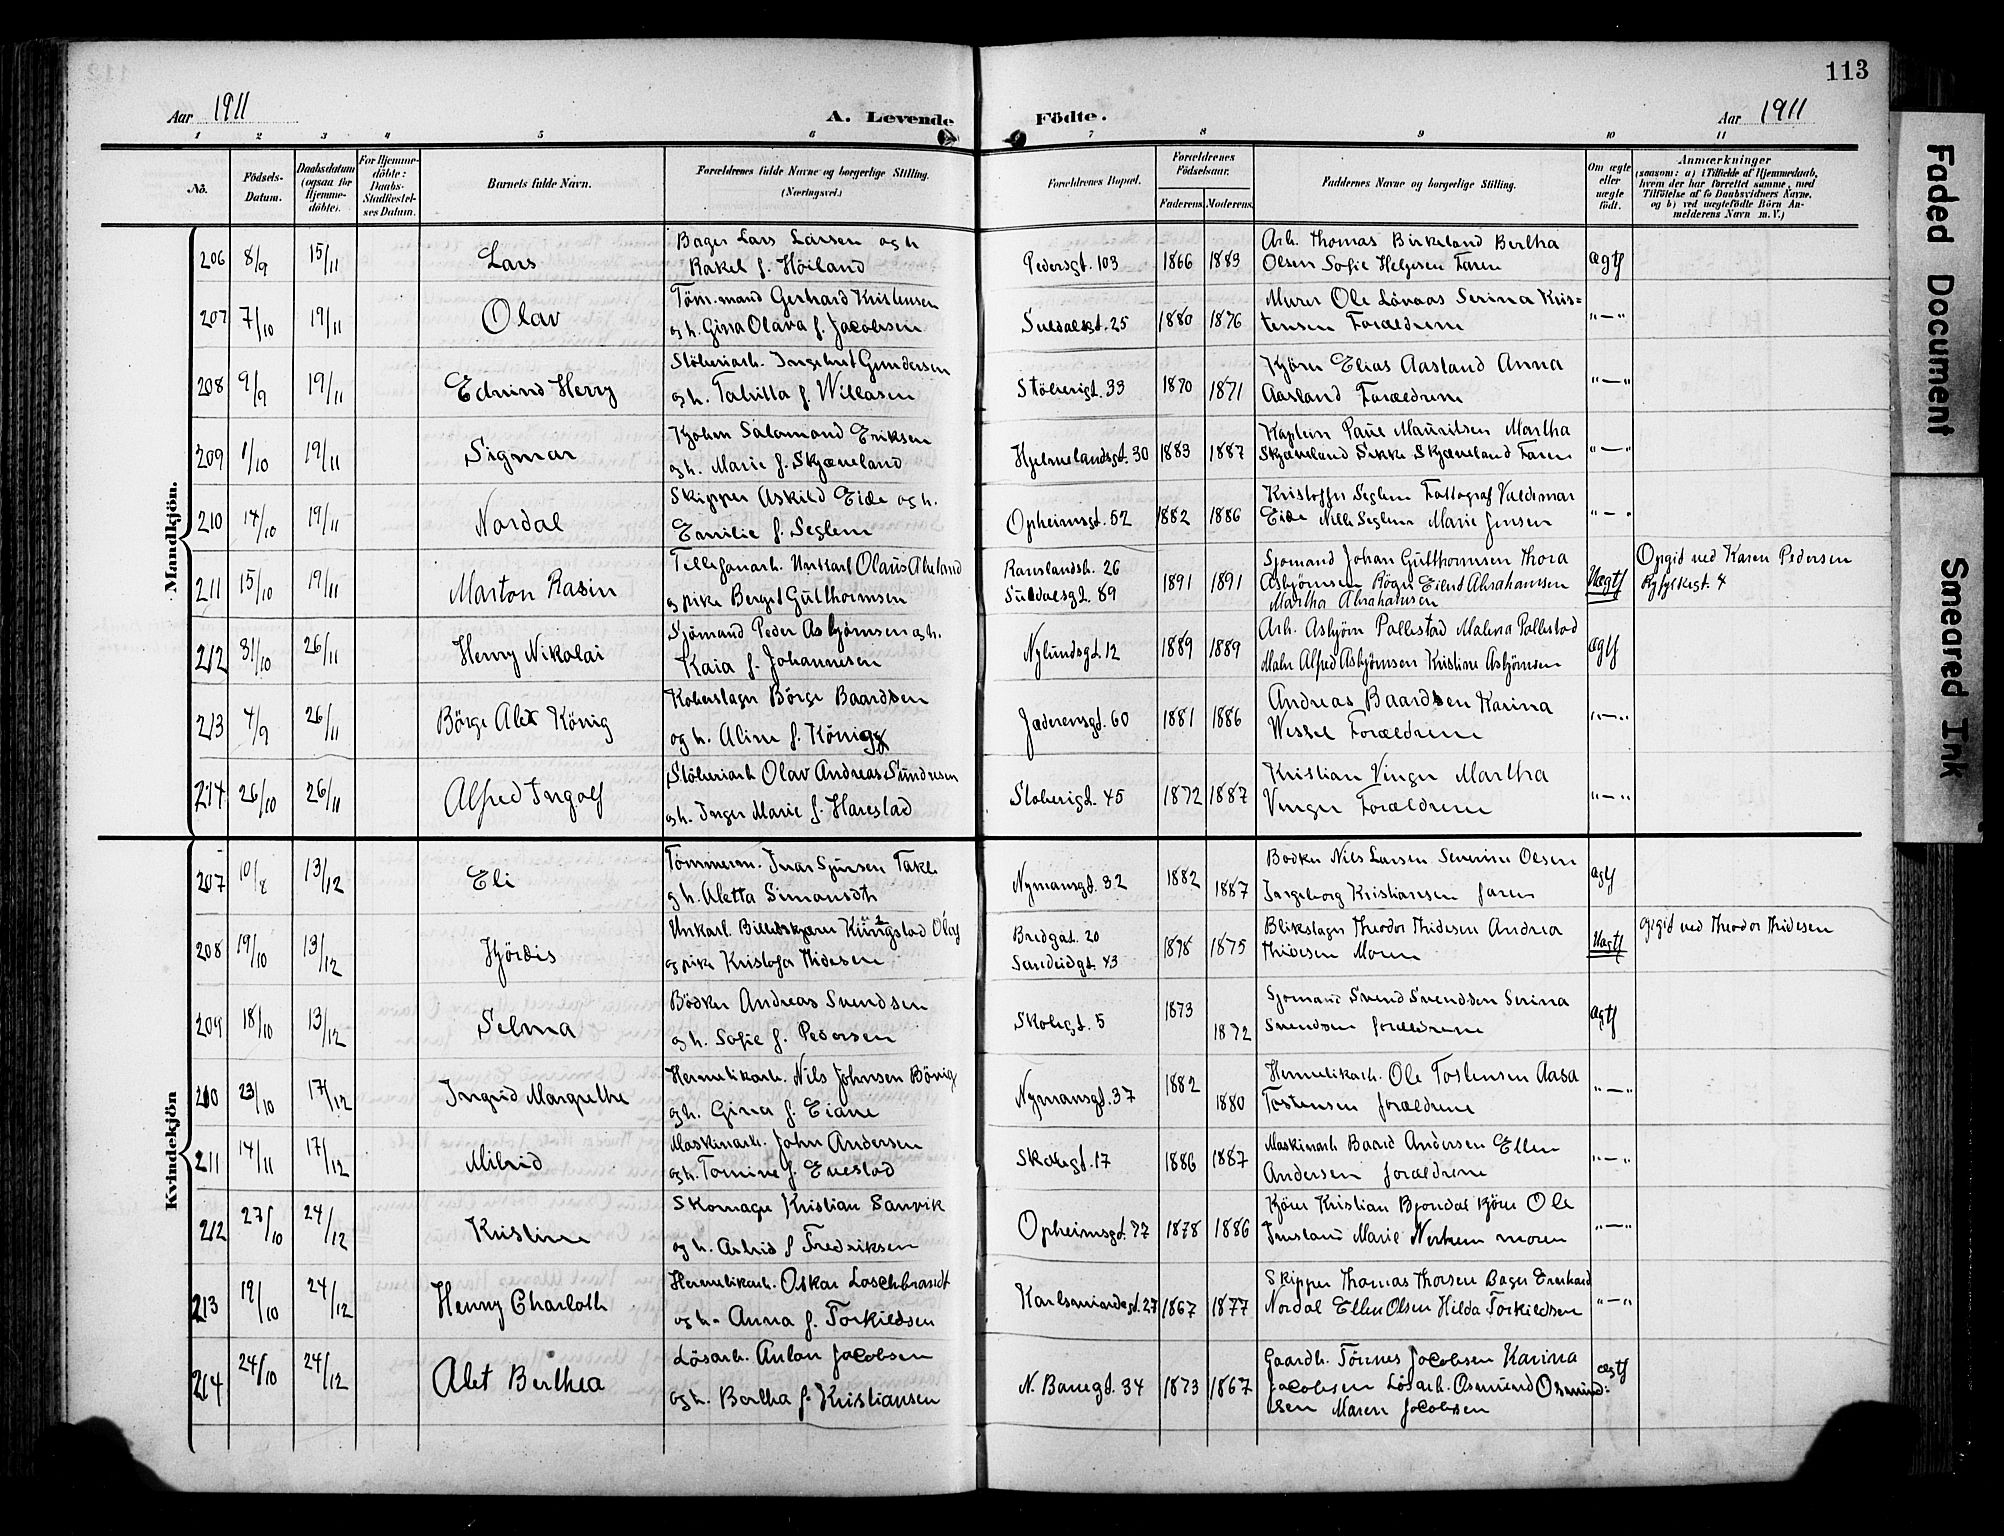 113
Aar 1911
A. Levende Födte.
Aar 1911
1 2 3 4 5 6 7 8 9 10 11
No.
Födsels-Datum.
Daabsdatum (ogsaa for Hjemme-döbte).
For Hjemme-döbte: Daabs-Stadfæstel-ses Datum.
Barnets fulde Navn.
Forældrenes fulde Navne og borgerlige Stilling. (Næringsvei.)
Forældrenes Bopæl.
Forældrenes Födselsaar.
Faderens. Moderens.
Faddernes Navne og borgerlige Stilling.
Om ægte eller uægte födt.
Anmærkninger
(saasom: a) i Tilfælde af Hjemmedaab, hvem der har forrettet samme, med Tilföielse af to Daabsvidners Navne, og b) ved uægtefödte Börn An-melderens Navn m. V.)
Mandkjön.
206 8/9 15/11 Lars
Bager Lars Larsen og h
Rakel f. Höiland
Pedersgt. 103 1866 1883
Arb. Thomas Birkeland Bertha
Olsen Sofie Helgesen Faren
ægtf
207 7/10 19/11 Olav
Töm.mand Gerhard Kristensen
og h. Gina Olava f. Jacobsen
Suldalsgt. 25 1880 1876
Murer Ole Lövaas Serina Kris=
tensen Forældrene
"—"
208 9/9 19/11 Edvind Herry
Stöberiarb. Ingebret Gundersen
og h. Tabitta f. Willasen
Stöberigt. 33 1870 1871
Kjörer Elias Aasland Anna
Aasland Forældrene
"—"
209 1/10 19/11 Sigmar
Salamond Eriksen
og h. Marie f. Skjæveland
Hjelmelandsgt. 30 1883 1887
Kaptein Paul Mauritsen Martha
Skjæveland Sikke Skjæveland Faren
"—"
210 14/10 19/11 Nordal
Skipper Askild Eide og h.
Emilie f. Seglem
Opheimsgt. 52 1882 1886
Kristoffer Seglem Fottograf Valdemar
Eide Nille Seglem Marie Jensen
"—"
211 15/10 19/11 Marton Rasin
Tellefonarb. Unkarl Olaus
og pike Berget Gutthormsen
26
Suldalsgt. 89 1891 1891
Sjomand Johan Gutthormsen Thora
Asbjörnsen Eilert Abrahamsen
Martha Abrahamsen
Uægtf
Opgid ved Karen Pedersen
Ryfylkegt. 4
212 31/10 26/11 Henry Nikolai
Sjömand Peder Asbjörnsen og h.
Kaia f. Johannesen
Nylundsgt. 12 1889 1889
Arb. Asbjörn Pollestad Malena Pollestad
Maler Alfred Asbjörnsen Kristine Asbjörnsen
ægtf
213 4/9 26/11 Börge Alex König
Koberslager Börge Baardsen
og h. Aline f. König
Jæderensgt. 60 1881 1886
Andreas Baardsen Karina
Wessel Forældrene
"—"
214 26/10 26/11 Alfred Ingolf
Stöberiarb Olav Andreas Sundresen
og h. Inger Marie f. Harestad
Stoberigt. 45 1872 1887
Kristian Vinger Martha
Vinger Forældrene
"—"
Kvindekjön
207 10/8 13/12 Eli
Tömmerm. Ivar Sjursen Takle
og h. Aletta Simonsdt
Nymansgt. 32 1882 1887
Bödker Nils Larsen Severine Olsen
Ingeborg Kristiansen faren
ægtf
208 19/10 13/12 Hjördis
Unkarl. Olaf
og pike Kristofa Thidesen
Bredgat. 20
Sandeidgt. 43 1878 1875
Blikslager Theodor Thidesen Andrea
Thidesen Moren
Uægtf
opgid ved Theodor Thidesen
209 18/10 13/12 Selma
Bödker Andreas Svendsen
og h. Sofie f. Pedersen
Skolegt. 5 1873 1872
Sjomand Svend Svendsen Serina
Svendsen forældrene
ægtf
210 23/10 17/12 Ingrid Margrethe
Hermetikarb. Nils Johnsen
og h. Gina f. Eiane
Nymansgt. 37 1882 1880
Hermetikarb. Ole Tostensen Aasa
Tostensen forældrene
"—"
211 14/11 17/12 Milrid
Maskinarb. John Andersen
og h. Tomine f. Evestad
Skolegt. 17 1886 1887
Maskinarb Baard Andersen Ellen
Andersen forældrene
"—"
212 27/10 24/12 Kristine
Skomager Kristian Sanvik
og h. Astrid f Fredriksen
Opheimsgt. 77 1878 1886
Kjörer Kristian Bjordal Kjörer Ole
Marie moren
"—"
213 19/10 24/12 Henny Charloth
Hermetikarb. Oskar Loschbrandt
og h. Anna f. Torkildsen
Karlsmindegt. 27 1867 1877
Skipper Thomas Thorsen Bager Enerhard
Nordal Ellen Olsen Hilda Torkildsen
"—"
214 24/10 24/12 Alet Berthea
Lösarb. Anton Jacobsen
og h. Bertha f. Kristiansen
N. Banegt. 34 1873 1867
Gaardb. Tönnes Jacobsen Karina
Jacobsen Lösarb. Osmund Osmund=
sen Maren Jacobsen
ægtf
Faded Document
Smeared Ink